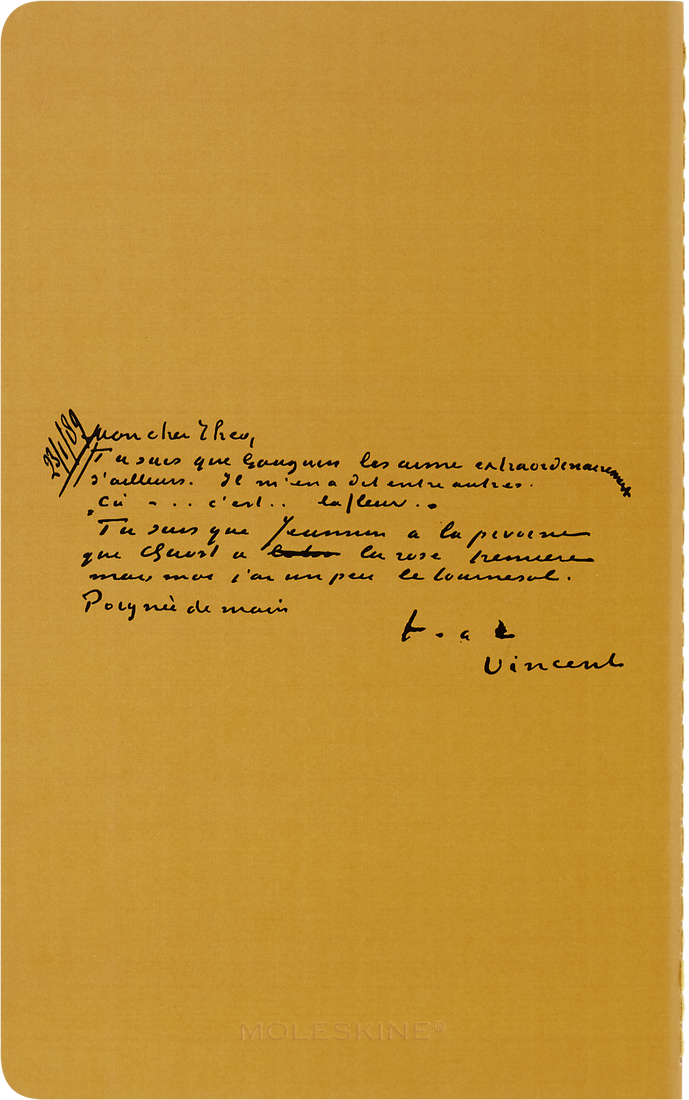 23/1/89
Mon cher Theo,
Tu sais que Gauguin les aime extraordinairement
d'ailleurs. Il m'en a dit entre autres.
„Ca - ... c'est.. la fleur.„
Tu sais que Jeannin a la pivoine
que Quost a la rose tremiere
mais moi j'ai un peu le tournesol.
Poignée de main
t. a t
Vincent
MOLESKINE®